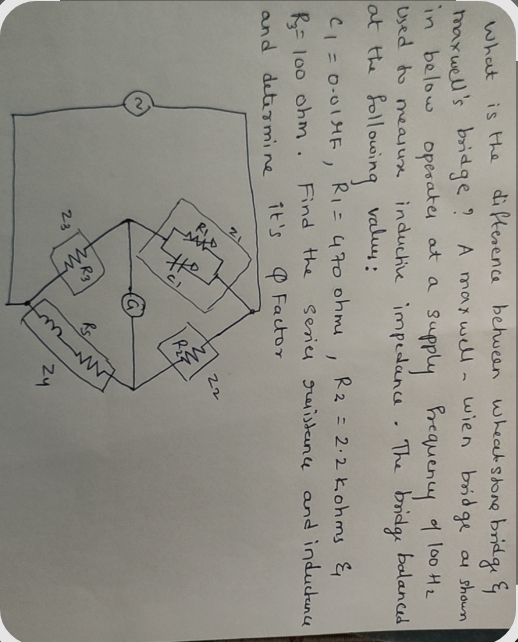 What is the difference between wheatstone bridge &
maxwell's bridge? A maxwell-wien bridge as shown
in below operates at a supply frequency of 100 Hz
used to measure inductive impedance. The bridge balanced
at the following values:
C1 = 0.01μF, R1 = 470 ohms, R2 = 2.2 k.ohms &
R3= 100 ohm. Find the series resistance and inductance
and determine it's Q Factor
Z1
R1
C1
Z2
R2
G
Z3
R3
RS
Z4